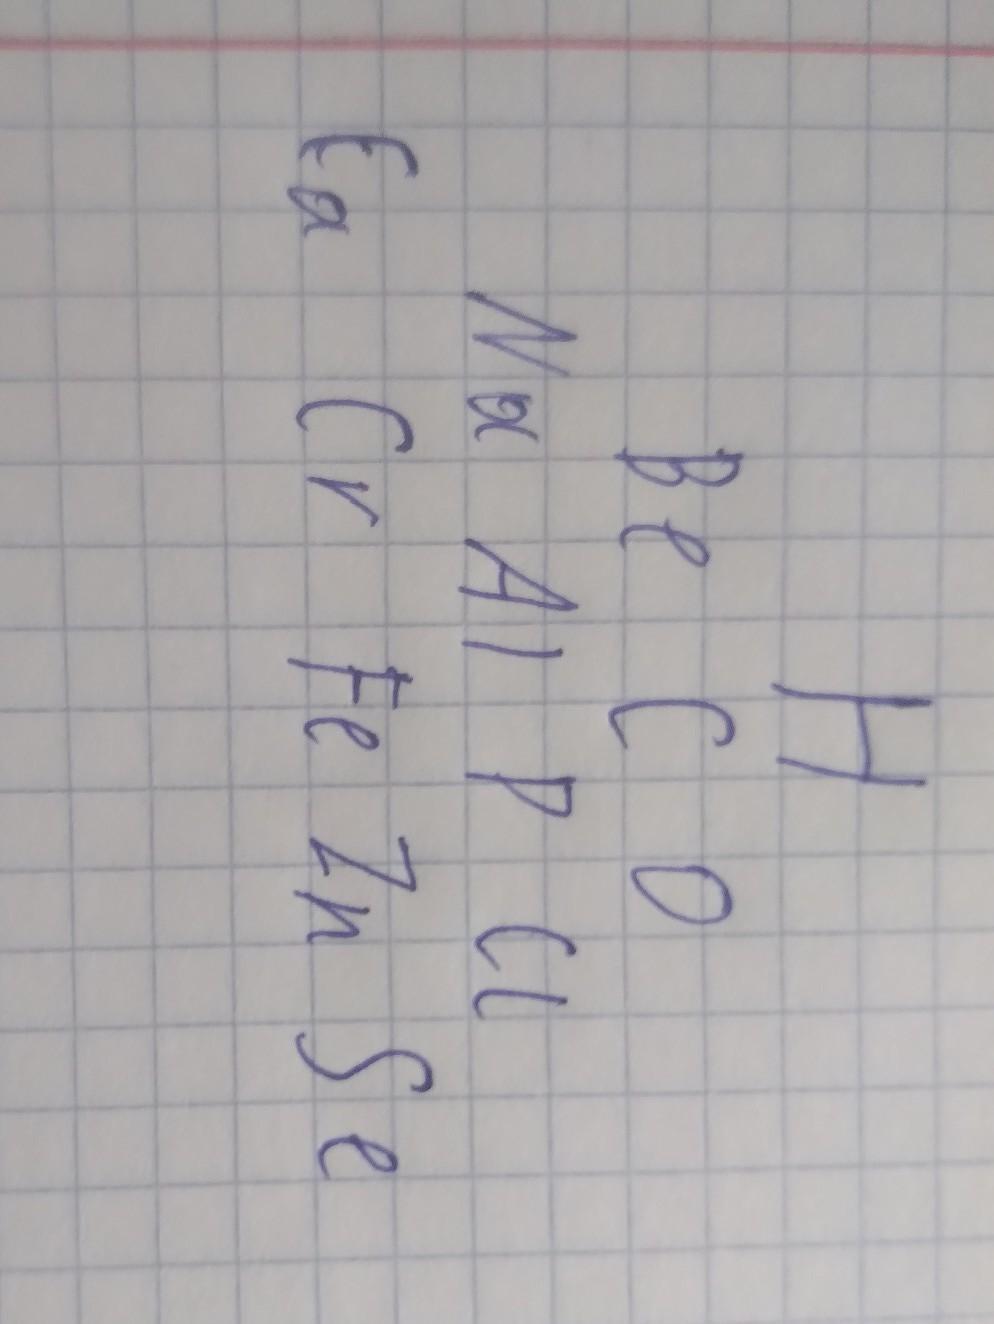 H
Be C O
Na Al P Cl
Ca Cr Fe Zn Se